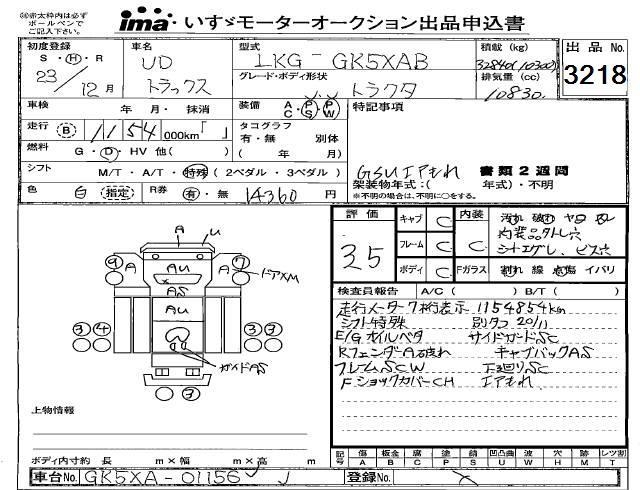 ※赤太枠内は必ず
ボールペンで
ご記入下さい。
ima・いすゞモーターオークション出品申込書
初度登録 車名 型式 積載(kg) 出品No.
S・H・R UD LKG-GK5XAB 32840(10300)
23 12月 トラックス グレード・ボディ形状 トラクタ 排気量(cc) 10830 3218
車検 年 月・抹消 装備 AC PS PW 特記事項
走行 B 1154 000km「 」 タコグラフ 有・無 別体
燃料 G・D・HV 他( ) ( 年 月)
シフト M/T・A/T・特殊 (2ペダル・3ペダル) GSUエアもれ 書類2週間
架装物年式:( 年式)・不明
※不明の場合は、不明に○をする。
色 白 指定 R券 有・無 14360円
評価 3.5
キャブ C 内装 C
フレーム C
ボディ C Fガラス 割れ 線 点傷 イバリ
内装品外し穴
シートコゲ、ビス穴
検査員報告 A/C( ) B/T( )
走行メーター7桁表示 1154854km
シフト特殊 別タコ 20/11
E/Gオイルベタ サイドガードSC
RフェンダーA破れ キャブバックAS
フレームSCW 下廻りSC
FショックカバーCH エアもれ
A U
9 A AU A 7 ドアXM
AS
3 4 3 3
ガイドAS
3
上物情報
ボディ内寸約 長 m×幅 m×高 m
記号 傷A 板金B 腐C 塗P 錆S 凹凸曲U 波W 穴H 跡M レツ割T
車台No. GK5XA-01156
登録No.